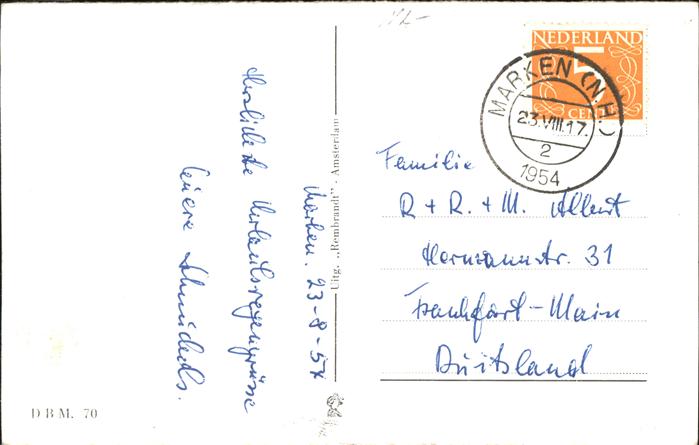 Marken. 23-8-54
Herzlichste Urlaubsregengrüsse
Eure Schmideds.
Uitg. „Rembrandt" - Amsterdam
D B M. 70
NEDERLAND
5
CENT
MARKEN (N.H.)
23.VIII.17.
2
1954
Familie
R + R. + M. Albert
Hermannstr. 31
Frankfurt-Main
Duitsland